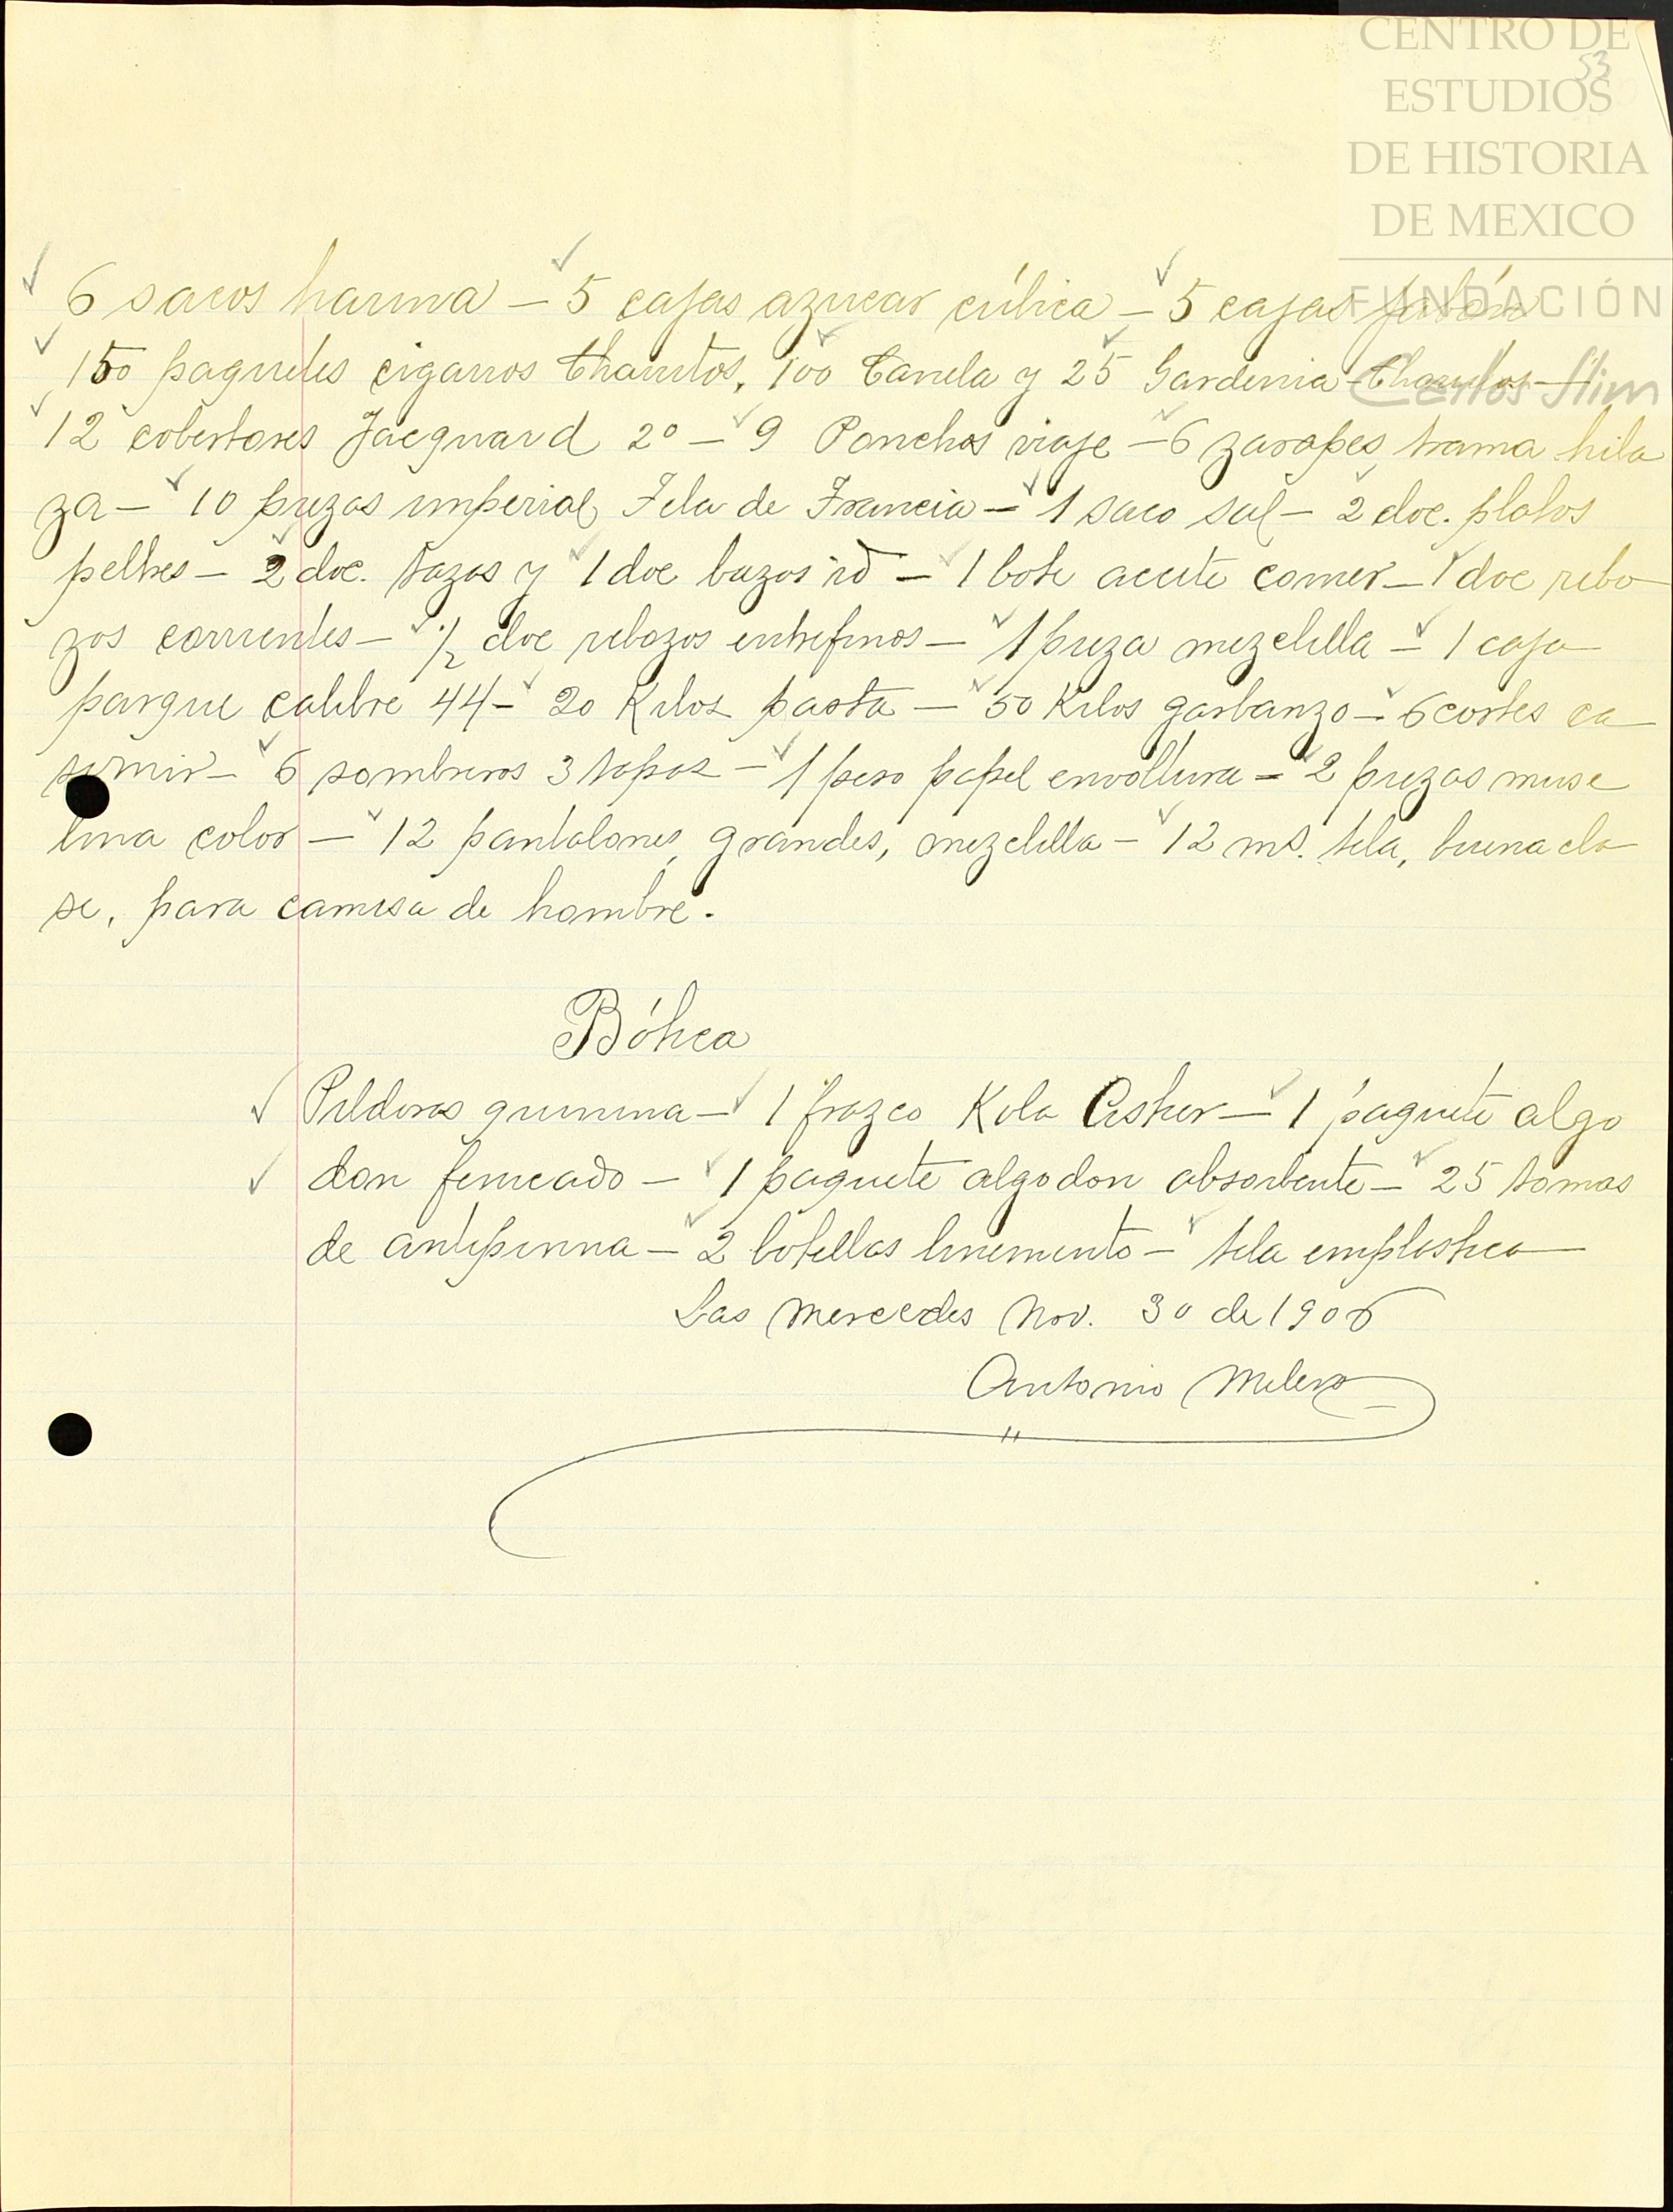 CENTRO DE
53
ESTUDIOS
DE HISTORIA
DE MEXICO
FUNDACIÓN
Carlos Slim
6 sacos harina – 5 cajas azucar cúbica – 5 cajas jabón
150 paquetes cigarros Charritos, 100 Canela y 25 Gardenia Charritos –
12 cobertores Jacquard 2º – 9 Ponchos viaje – 6 zarapes trama hila
za – 10 piezas imperial Tela de Francia – 1 saco sal – 2 doc. platos
peltre – 2 doc. tazas y 1 doc bazos id – 1 bote aceite comer – 1 doc rebo
zos corrientes – 1/2 doc rebozos entrefinos – 1 pieza mezclilla – 1 caja
parque calibre 44 – 20 Kilos pasta – 50 Kilos garbanzo – 6 cortes ca
simir – 6 sombreros 3 tapas – 1 peso papel envoltura – 2 piezas muse
lina color – 12 pantalones, grandes, mezclilla – 12 ms. tela, buena cla
se, para camisa de hombre.
Bótica
Pildoras quinina – 1 frazco Kola Astier – 1 paquete algo
don fenicado – 1 paquete algodon absorbente – 25 tomas
de antipirina – 2 botellas linimento – tela emplastica
Las Mercedes Nov. 30 de 1906
Antonio